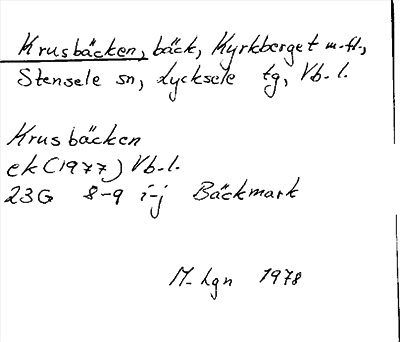 Krusbäcken, bäck, Kyrkberget m.fl.,
Stensele sn, Lycksele tg, Vb.l.
Krusbäcken
ek (1977) Vb.l.
23G 8-9 i-j Bäckmark
M. Lgn 1978